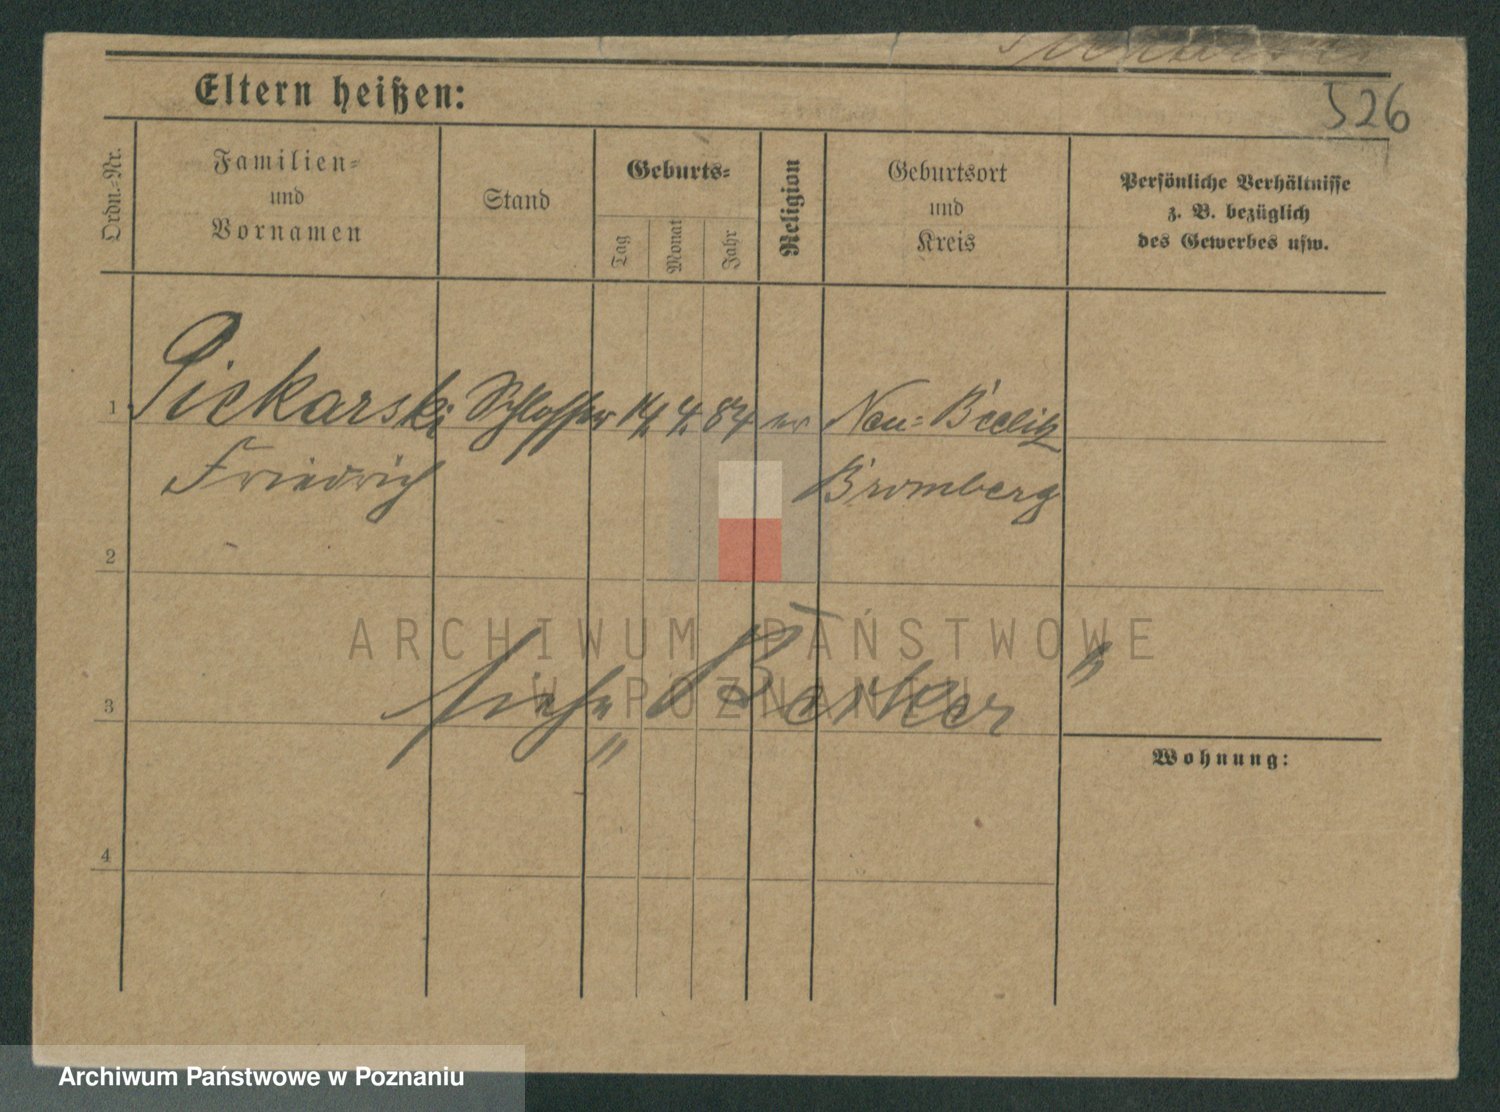 Eltern heißen:
526
Ordn.-Nr.
Familien-
und
Vornamen
Stand
Geburts-
Tag
Monat
Jahr
Religion
Geburtsort
und
Kreis
Persönliche Verhältnisse
z. B. bezüglich
des Gewerbes usw.
1 Piekarski Schlosser 14 4 84 ev Neu-Beelitz
Friedrich Bromberg
2
ARCHIWUM PAŃSTWOWE
W POZNANIU
3 siehe "Becker"
Wohnung:
4
Archiwum Państwowe w Poznaniu